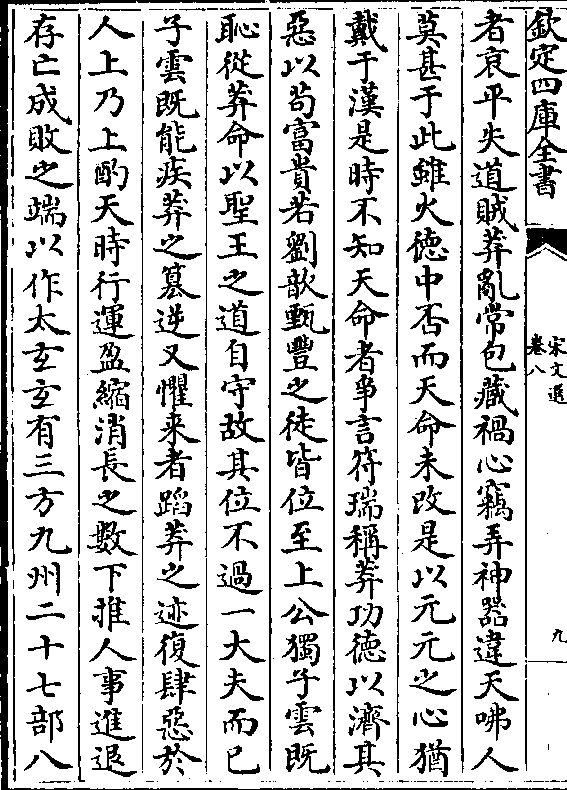 欽定四庫全書
宋文選
卷八
九
者哀平失道賊莽亂常包藏禍心竊弄神器違天咈人
莫甚于此雖火徳中否而天命未改是以元元之心猶
戴于漢是時不知天命者爭言符瑞稱莽功徳以濟其
惡以茍富貴若劉歆甄豐之徒皆位至上公獨子雲既
恥從莽命以聖王之道自守故其位不過一大夫而已
子雲既能疾莽之簒逆又懼来者蹈莽之迹復肆惡於
人上乃上酌天時行運盈縮消長之數下推人事進退
存亡成敗之端以作太𤣥𤣥有三方九州二十七部八